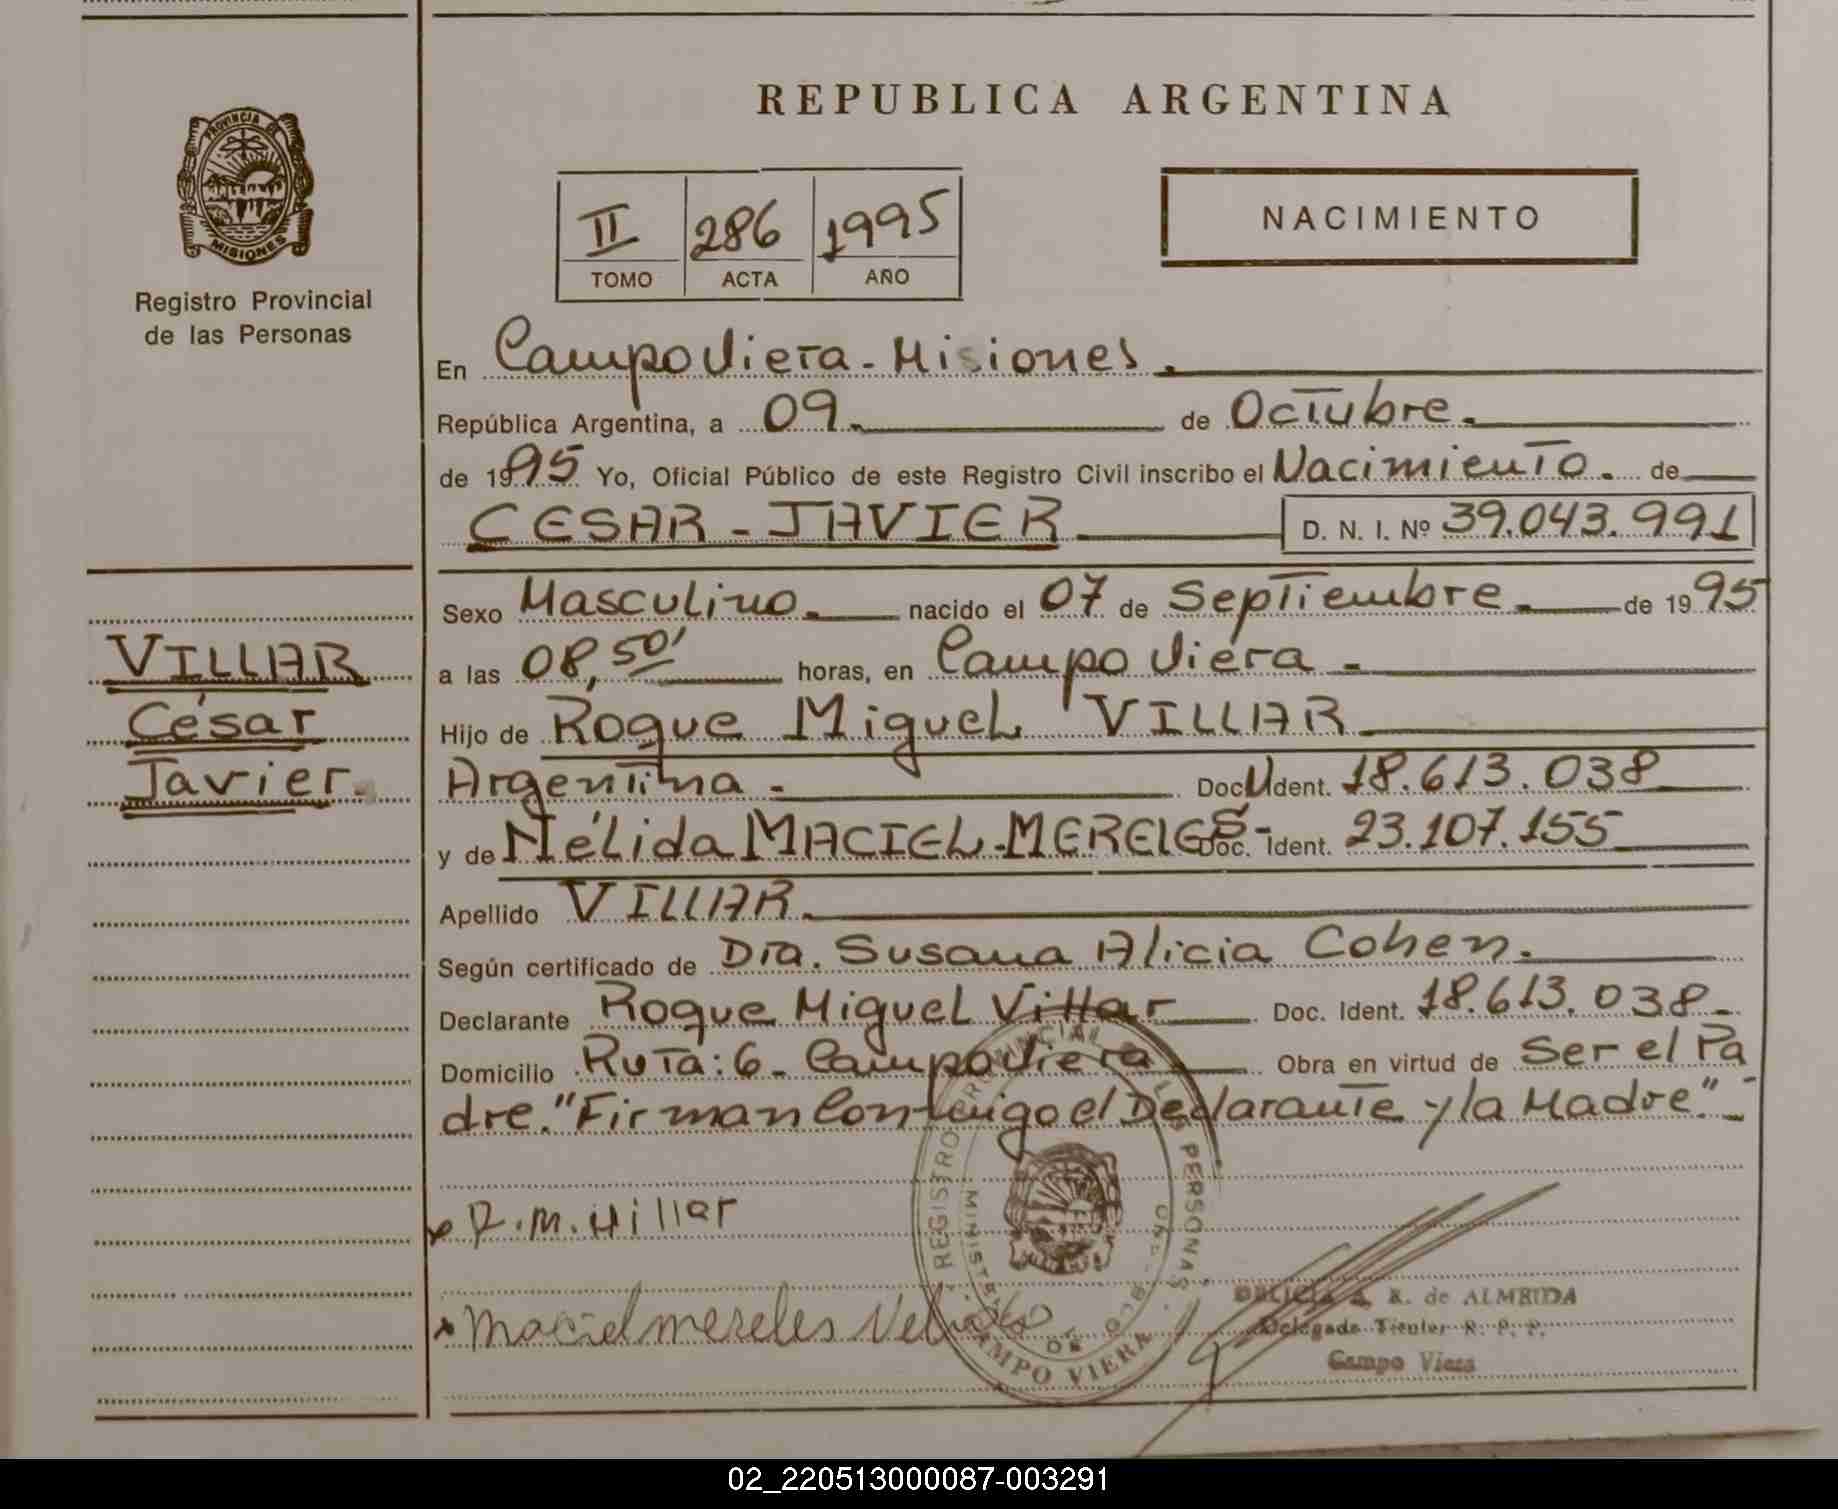 REPUBLICA ARGENTINA
PROVINCIA DE
MISIONES
Registro Provincial
de las Personas
II 286 1995
TOMO ACTA AÑO
NACIMIENTO
En Campo Viera - Misiones.
República Argentina, a 09. de Octubre.
de 1995 Yo, Oficial Público de este Registro Civil inscribo el Nacimiento. de
CESAR - JAVIER D. N. I. Nº 39.043.991
VILLAR
César
Javier.
Sexo Masculino. nacido el 07 de Septiembre. de 1995
a las 08,50' horas, en Campo Viera -
Hijo de Roque Miguel VILLAR
Argentina - Doc. U Ident. 18.613.038
y de Nélida MACIEL-MERELES- Doc. Ident. 23.107.155
Apellido VILLAR.
Según certificado de Dra. Susana Alicia Cohen.
Declarante Roque Miguel Villar Doc. Ident. 18.613.038-
Domicilio Ruta: 6- Campo Viera Obra en virtud de Ser el Pa
dre. "Firman Conmigo el Declarante y la Madre."-
x R.M. Villar
x Maciel mereles Nelida
REGISTRO PROVINCIAL DE LAS PERSONAS
CAMPO VIERA
R. de ALMEIDA
Delegada Titular R. P. P.
Campo Viera
02_220513000087-003291